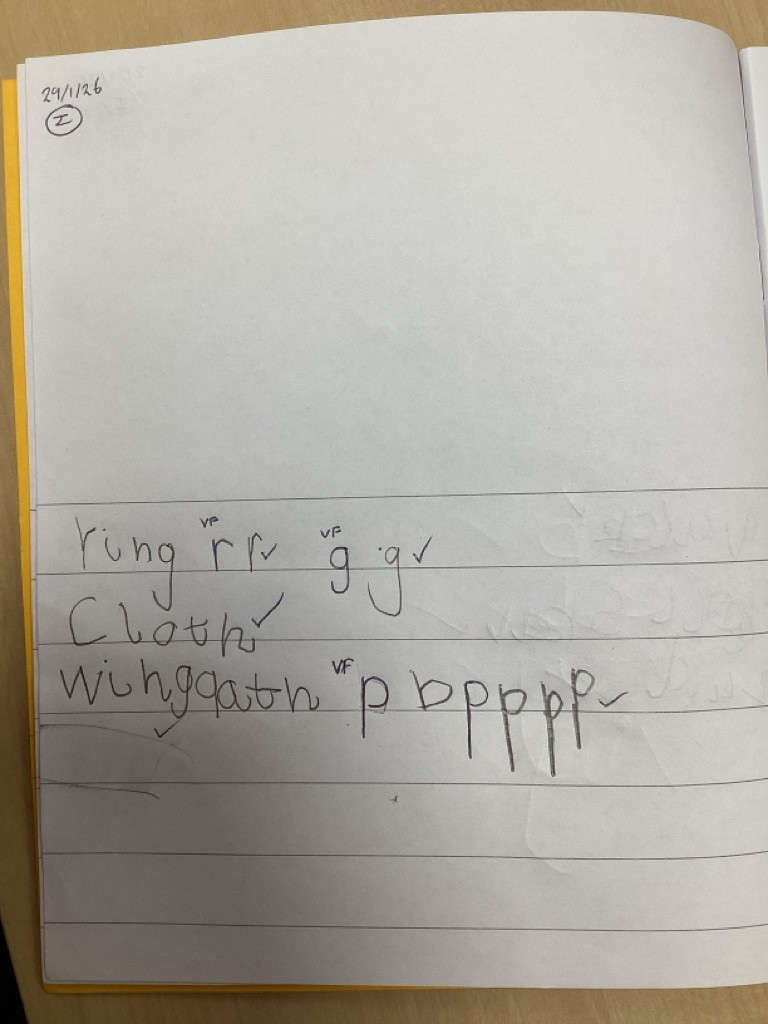 29/1/26
I
ring VF r r ✓ VF g g ✓
Cloth ✓
wing qath VF p b p p p p ✓
✓